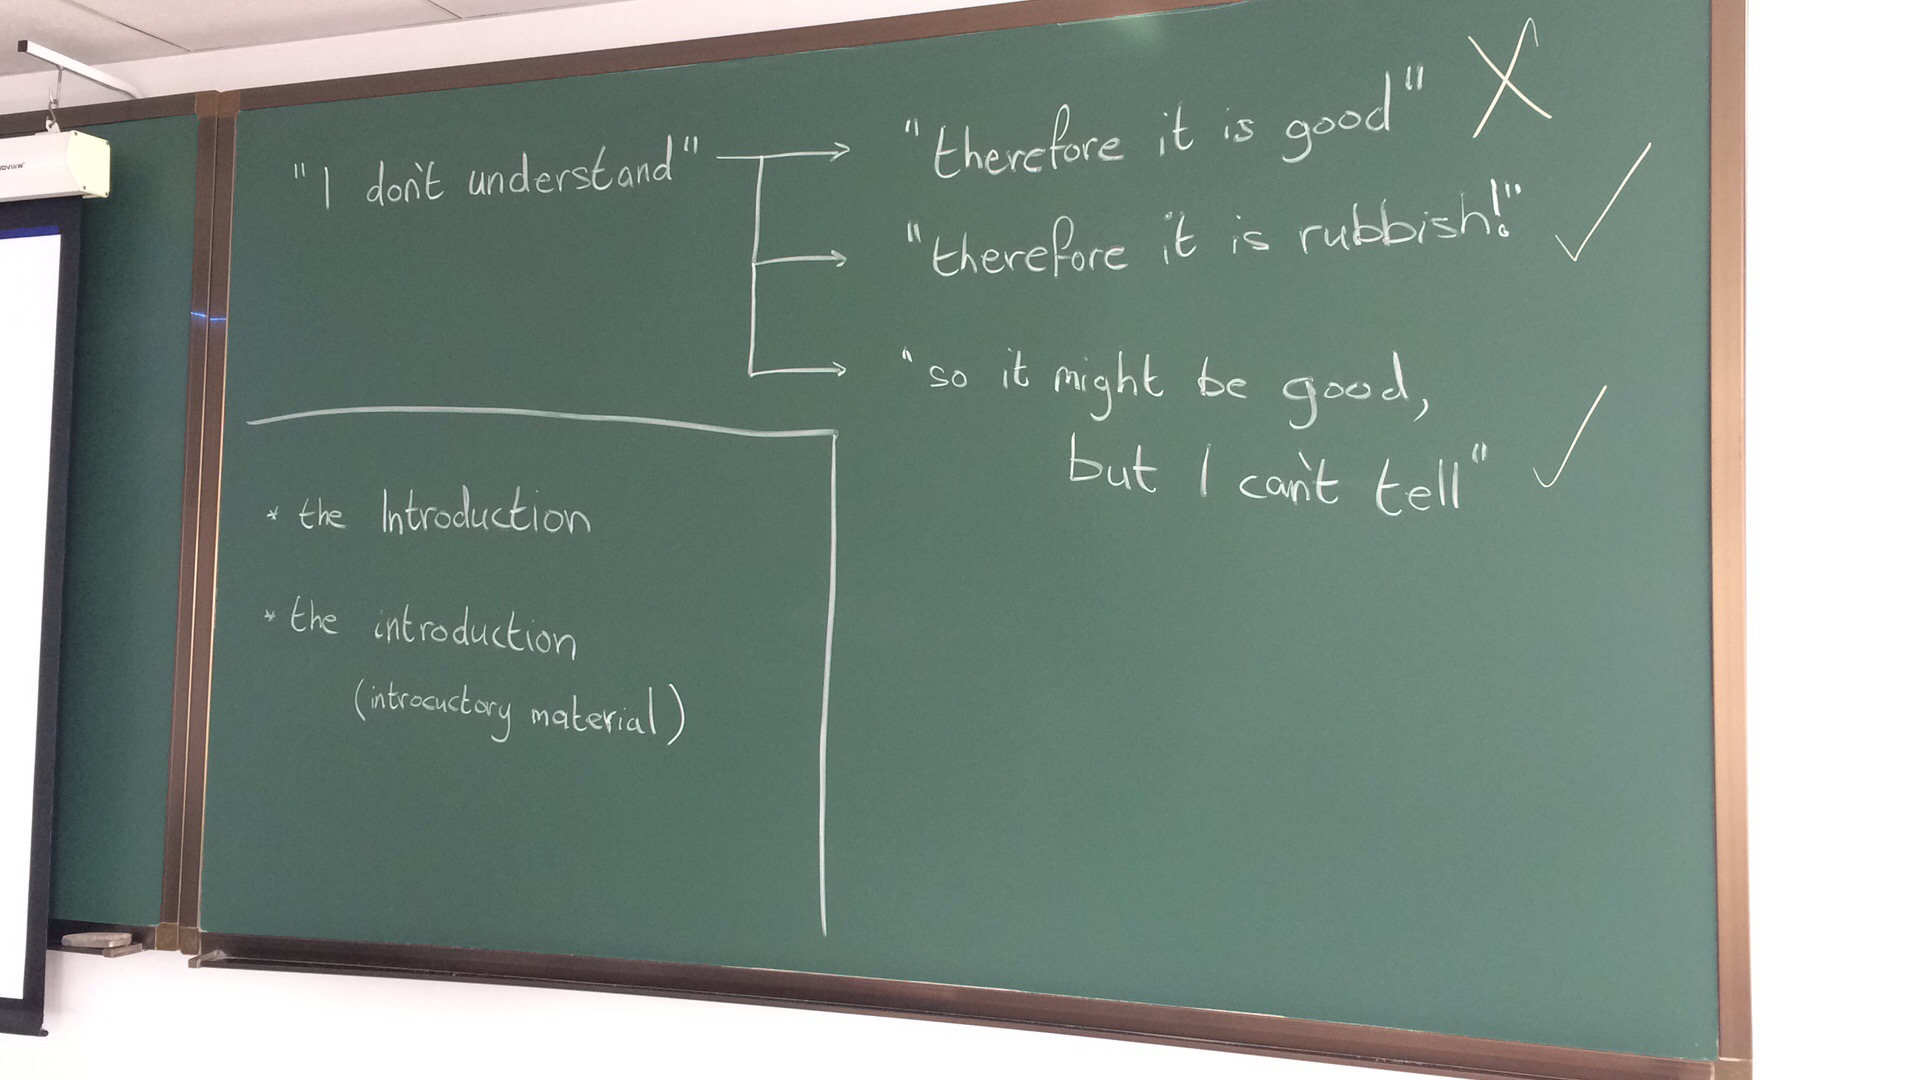 "I don't understand"
"therefore it is good" X
"therefore it is rubbish!" ✓
"so it might be good,
but I can't tell" ✓
* the Introduction
* the introduction
(introcuctory material)